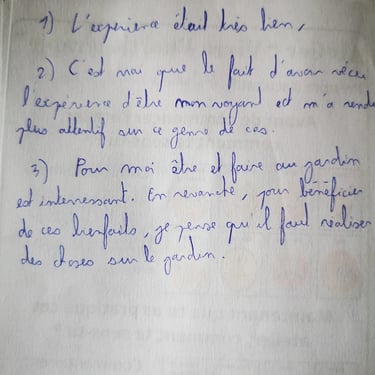 1) L'expérience était très bien,
2) C'est vrai que le fait d'avoir vécu
l'expérience d'être non voyant est m'a rendu
plus attentif sur ce genre de cas.
3) Pour moi être et faire au jardin
est interressant. En revanche, pour bénéficier
de ces bienfaits, je pense qu'il faut réaliser
des choses sur le jardin.